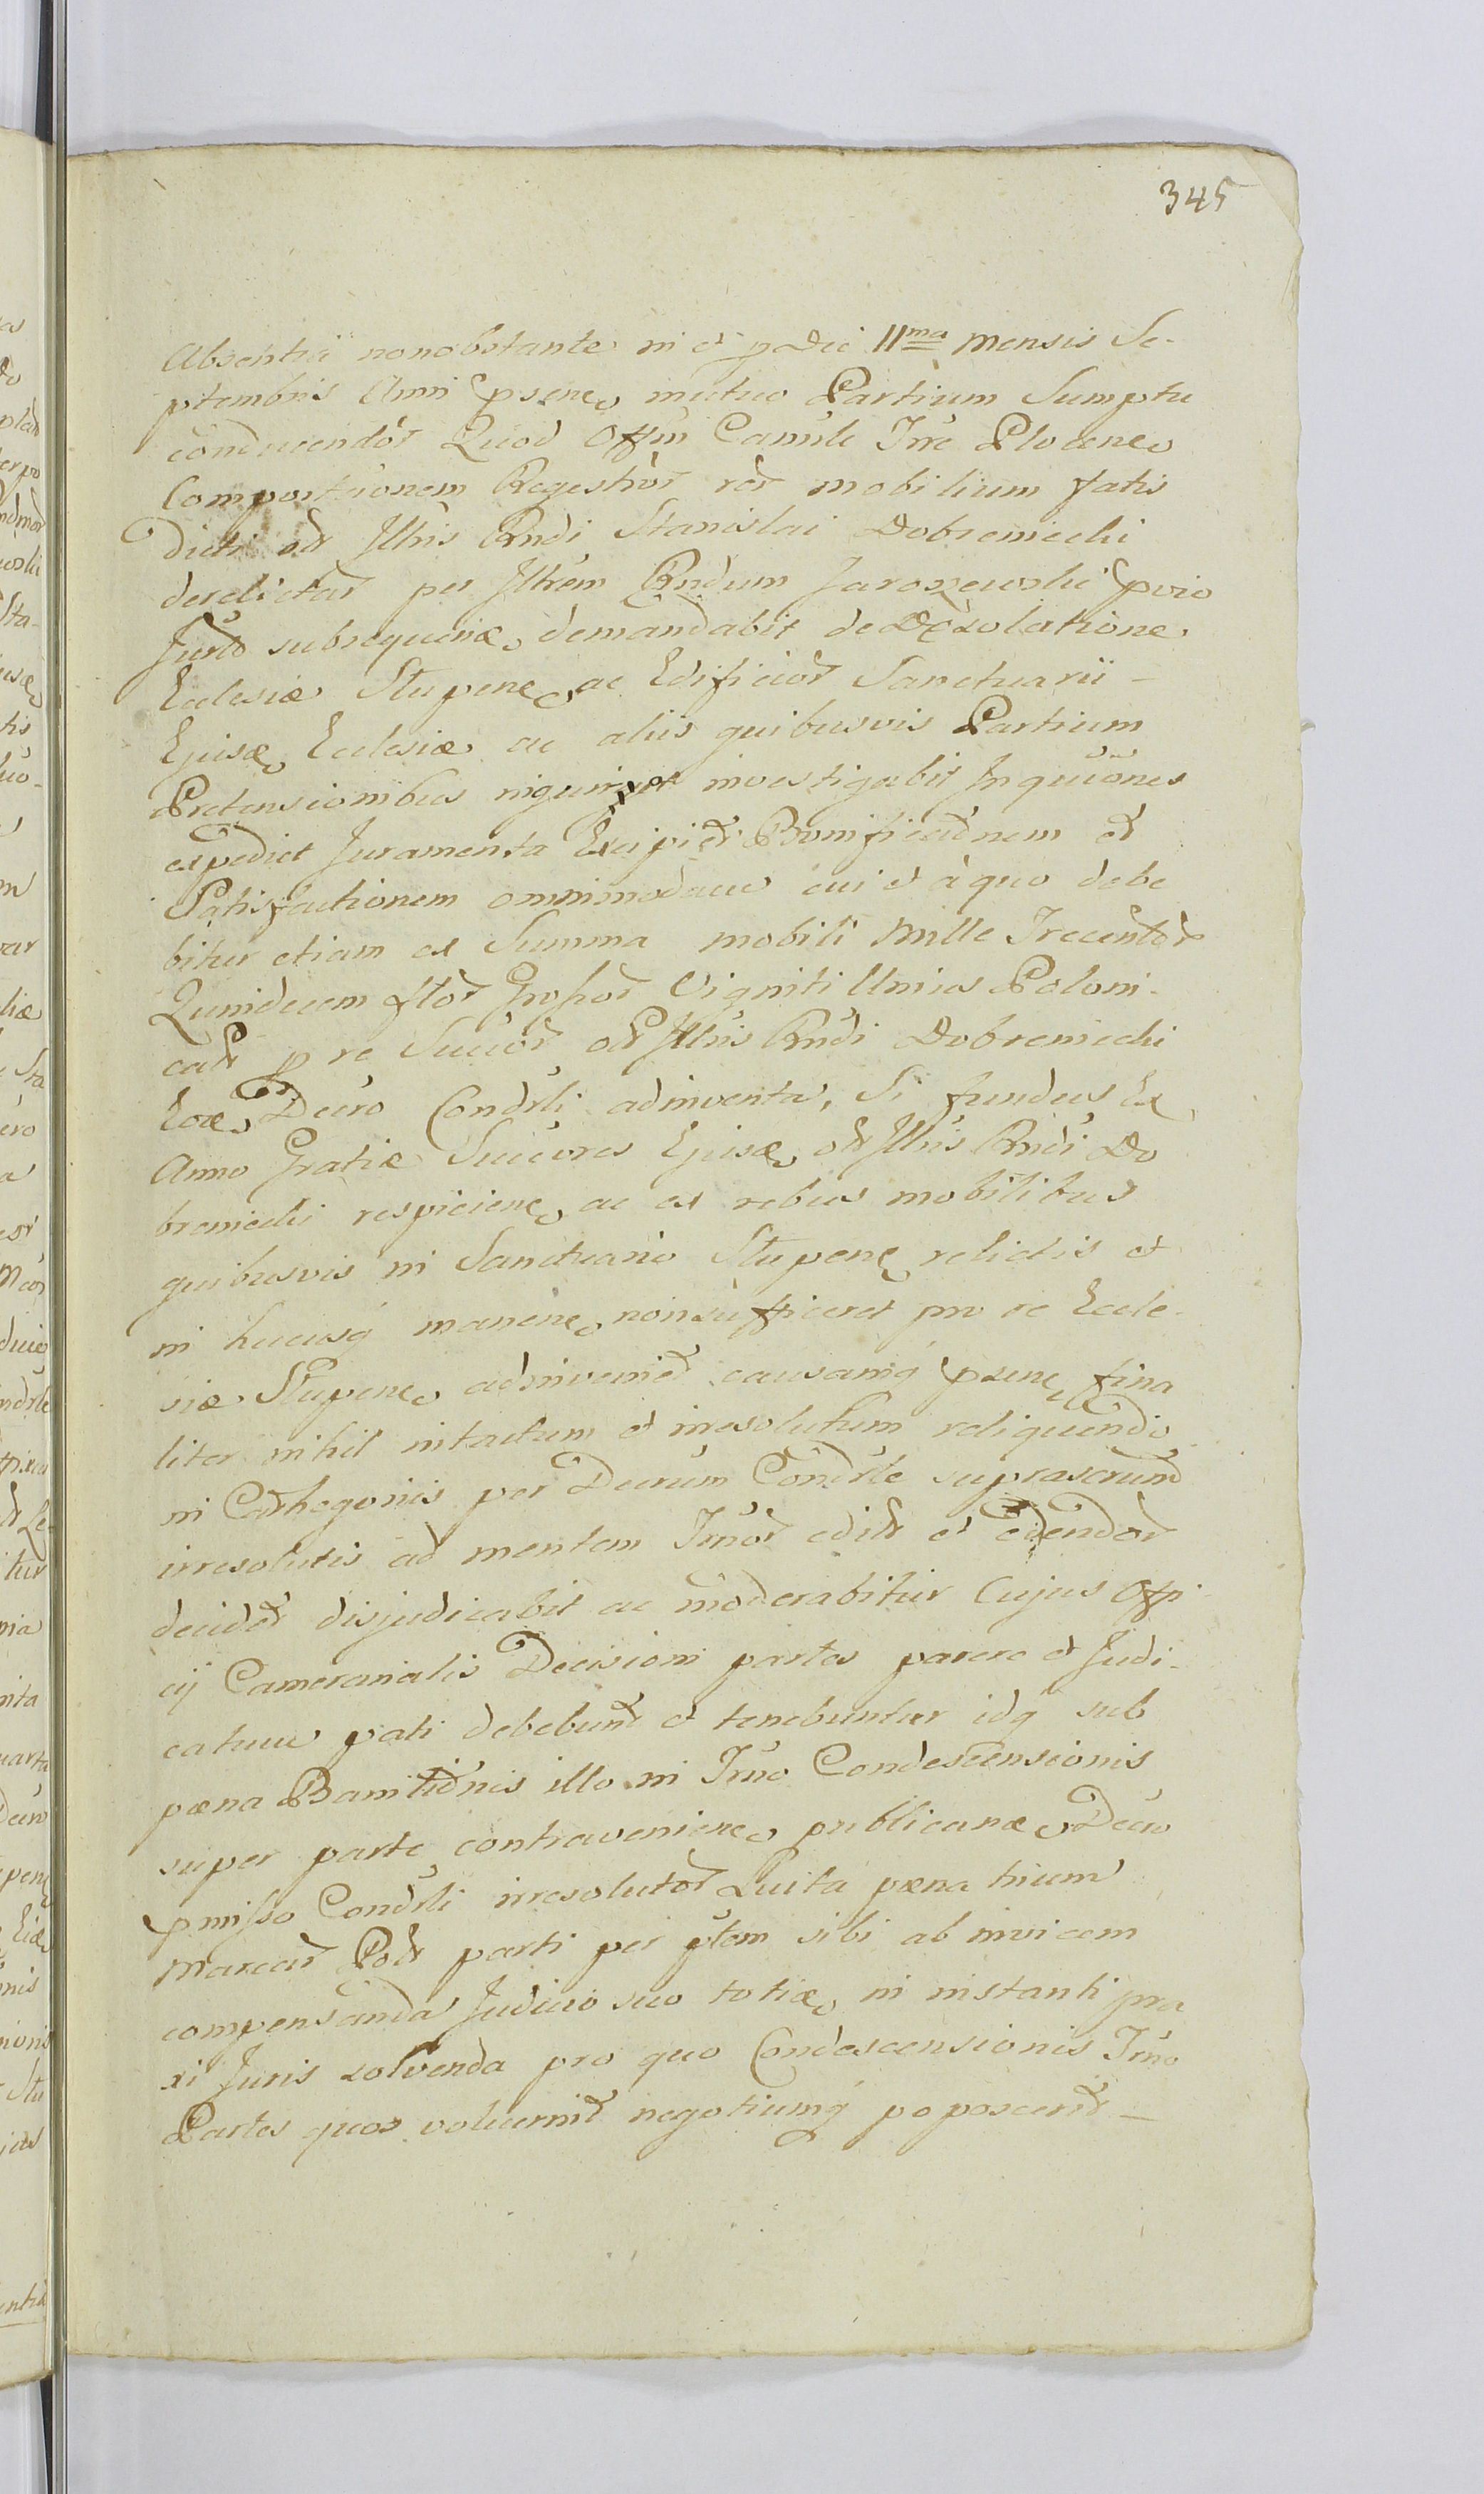 345
Absentia nonobstante in et p Die 11ma Mensis Se-
ptembris Anni psene mutuo Partium Sumptu
conducendor Quod Offm Camule Trre Plocene
Comportaionem Regestror rer mobilium fatis
dicti od Illris Rndi Stanislai Dobreniecki
derelictar per Illrem Rndum Jaroszewski pvio
Jurto subsequinae demandabit de Desolatione
Eclesiae Stupene ac Edificior Sanctuarii -
Ejusae Eclesiae ac aliis quibusvis Partium
Pretensionibus investigabit Inquiones
expediet Juramenta Excipiet Bonificaonem et
Satisfactionem omnimodam cui et à quo debe
bitur etiam ex Summa mobili Mille Trecentor
Quindecem flor Grossor Viginti Unius Poloni-
calt p re Succor olt Illris Rndi Dobreniecki
Eoae Decro Condrli adinventa, Si fundus Ex
Anno Gratiae Succores Ejusae olt Illris Rndi Do
breniecki respiciene ac ex rebus mobilibus
quibusvis in Sanctuario Stupene relictis et
in hucusq manene non sufficeret pro re Eccle-
siae Stupene adinveniet causamq psene fina
liter nihil intactum et irresolutum reliquendo
in Cathegoriis per Decrum Condrle suprascrum
irresolutis ad mentem Trnor edit et edendor
decidet disjudicabit ac moderabitur Cujus Offi-
cij Camerarialis Decisioni partes parere et Judi-
catum pati debebunt et tenebuntur idq sub
paena Bannitionis illo in Trno Condescensionis
super parte contraveniene publicanae Decro
pmisso Condrli irresolutor Luita paena trium
Marcar Polt parti per ptem sibi ab invicem
compensanda Judicio suo totiae in instanti pra
xi Juris solvenda pro quo Condescensionis Trno
Partes quos voluerint negotiumq poposcerit -